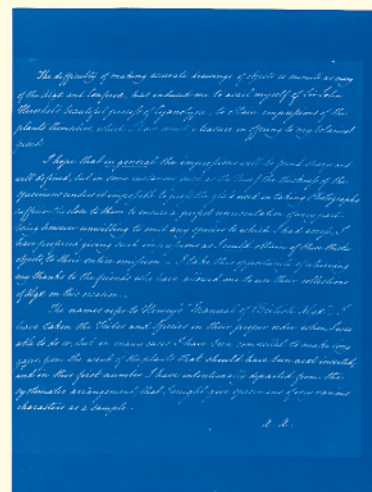 The difficulty of making accurate drawings of objects as minute as many
of the Algæ and Confervæ, has induced me to avail myself of Sir John
Herschel's beautiful process of Cyanotype, to obtain impressions of the
plants themselves, which I have much pleasure in offering to my botanical
friends.
I hope that in general the impressions will be found sharp and
well defined, but in some instances such as the Fuci the thickness of the
specimens renders it impossible to press the glass used in taking Photographs
sufficiently close to them to ensure a perfect representation of every part.
Being however unwilling to omit any species to which I had access I
have preferred giving such impressions as I could obtain of these thick
objects, to their entire omission. I take this opportunity of returning
my thanks to the friends who have allowed me to use their collections
of Algæ on this occasion.
The names refer to Harvey's "Manual of British Algæ." I
have taken the Tribes and Species in their proper order when I was
able to do so, but in many cases I have been compelled to make long
gaps, from the want of the plants that should have been next inserted,
and in this first number I have intentionally departed from the
systematic arrangement, that I might give specimens of very various
characters as a sample.
A. A.